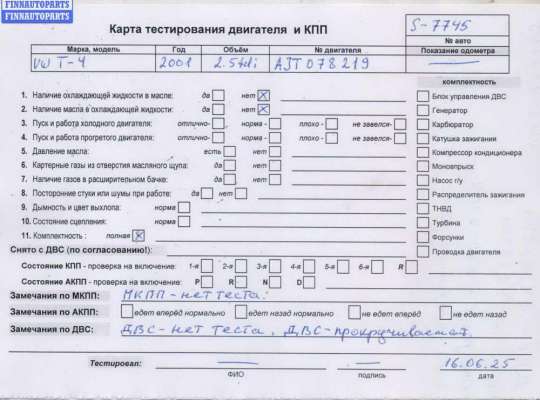 FINNAUTOPARTS
FINNAUTOPARTS
Карта тестирования двигателя и КПП
S-7745
№ авто
Марка, модель Год Объём № двигателя Показание одометра
VW T-4 2001 2.5tdi AJT078219 —
комплектность
1. Наличие охлаждающей жидкости в масле: да нет Блок управления ДВС
2. Наличие масла в охлаждающей жидкости: да нет Генератор
3. Пуск и работа холодного двигателя: отлично- норма - плохо - не завелся- Карбюратор
4. Пуск и работа прогретого двигателя: отлично- норма - плохо - не завелся- Катушка зажигания
5. Давление масла: есть нет Компрессор кондиционера
6. Картерные газы из отверстия масляного щупа: да нет Моновпрыск
7. Наличие газов в расширительном бачке: да нет Насос г/у
8. Посторонние стуки или шумы при работе: да нет Распределитель зажигания
9. Дымность и цвет выхлопа: норма ТНВД
10. Состояние сцепления: норма Турбина
11. Комплектность : полная Форсунки
Снято с ДВС (по согласованию!): Проводка двигателя
Состояние КПП - проверка на включение: 1-я 2-я 3-я 4-я 5-я 6-я R
Состояние АКПП - проверка на включение: P R N D
Замечания по МКПП: МКПП-нет теста.
Замечания по АКПП: едет вперёд нормально едет назад нормально не едет вперёд не едет назад
Замечания по ДВС: ДВС-нет теста. ДВС-прокручивается.
Тестировал: — — 16.06.25
ФИО подпись дата